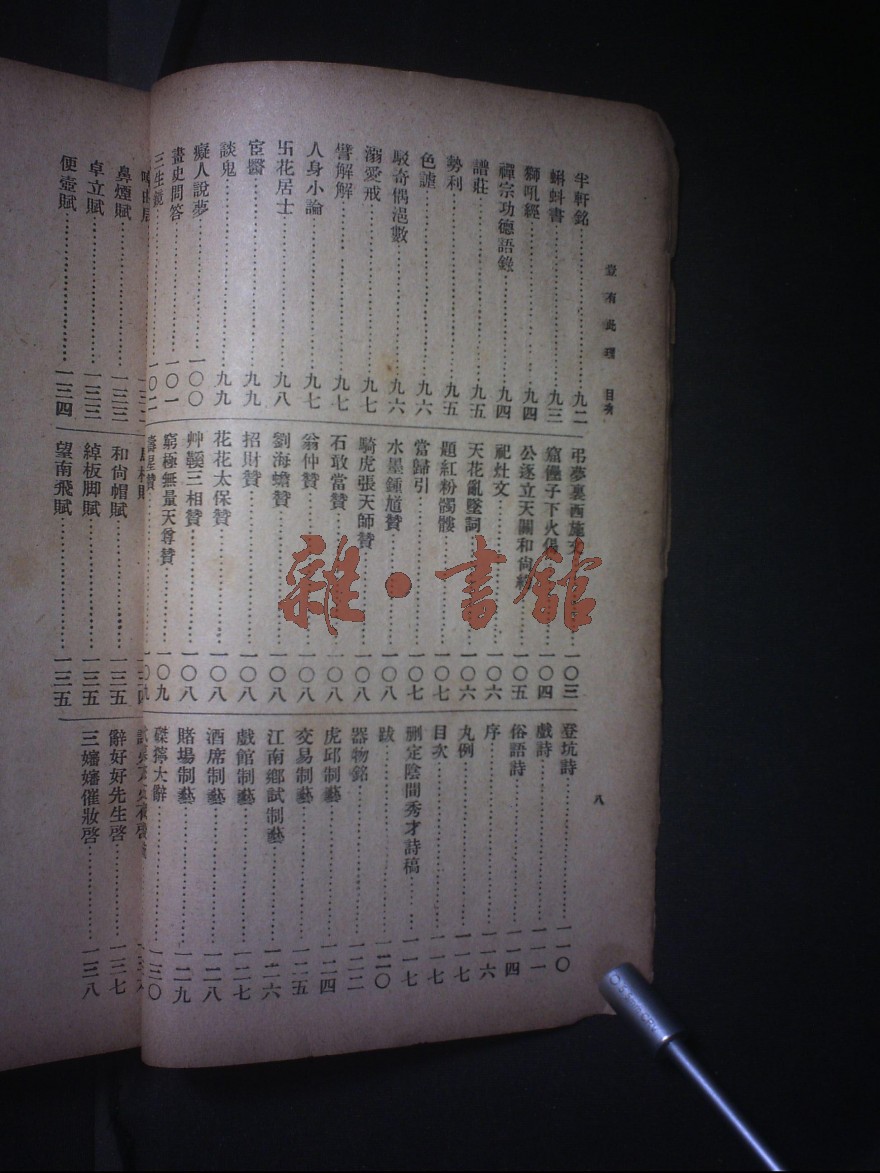 豈有此理 目次
八
半軒銘 九二
蝌蚪書 九三
獅吼經 九四
禪宗功德語錄 九四
譜莊 九五
勢利 九五
色謔 九六
駁奇偶浥數 九六
溺愛戒 九七
譬解解 九七
人身小論 九七
卐花居士 九八
宦醫 九九
談鬼 九九
癡人說夢 一〇〇
畫史問答 一〇一
三生鏡 一〇二
弔夢裏西施文 一〇三
下火 一〇四
公逐立天關和尚 一〇五
祀灶文 一〇六
天花亂墜詞 一〇六
題紅粉髑髏 一〇七
當歸引 一〇七
水墨鍾馗贊 一〇八
騎虎張天師贊 一〇八
石敢當贊 一〇八
翁仲贊 一〇八
劉海蟾贊 一〇八
招財贊 一〇八
花花太保贊 一〇八
艸鞵三相贊 一〇八
窮極無量天尊贊 一〇九
壽星贊 一〇九
登坑詩 一一〇
戲詩 一一一
俗語詩 一一四
序 一一六
凡例 一一七
目次 一一七
刪定陰間秀才詩稿 一一七
跋 一二〇
器物銘 一二二
虎邱制藝 一二四
交易制藝 一二五
江南鄉試制藝 一二六
戲館制藝 一二七
酒席制藝 一二八
賭場制藝 一二九
磔擰大辭 一三〇
鼻煙賦 一三三
卓立賦 一三三
便壺賦 一三四
和尙帽賦 一三五
綽板脚賦 一三五
望南飛賦 一三五
辭好好先生啓 一三七
三嬸嬸催妝啓 一三八
雜·書館